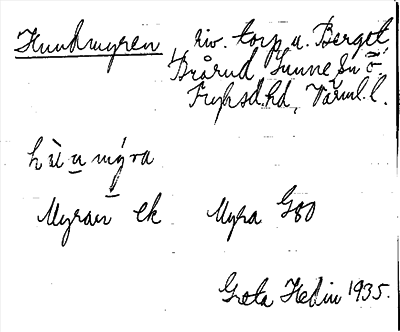 Hundmyren, riv. torp u. Berget,
Brårud Sunne sn ö
Fryksd. hd, Värml. l.
hùnmýra
Myran ek Myra G80
Greta Hedin 1935.